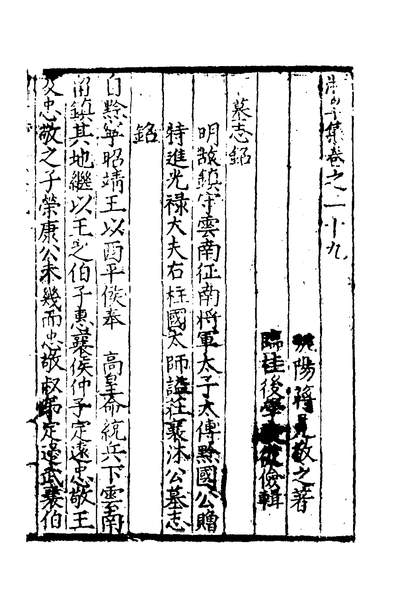 集卷之二十九
陽蔣冕敬之著
臨桂後學 儉輯
墓志銘
明故鎮守雲南征南將軍太子太傅黔國公贈
特進光祿大夫右柱國太師謚莊襄沐公墓志
銘
自黔寧昭靖王以西平侯奉 高皇命統兵下雲南
留鎮其地繼以王之伯子惠襄侯仲子定遠忠敬王
及忠敬之子榮康公未幾而忠敬叔弟定邊武襄伯